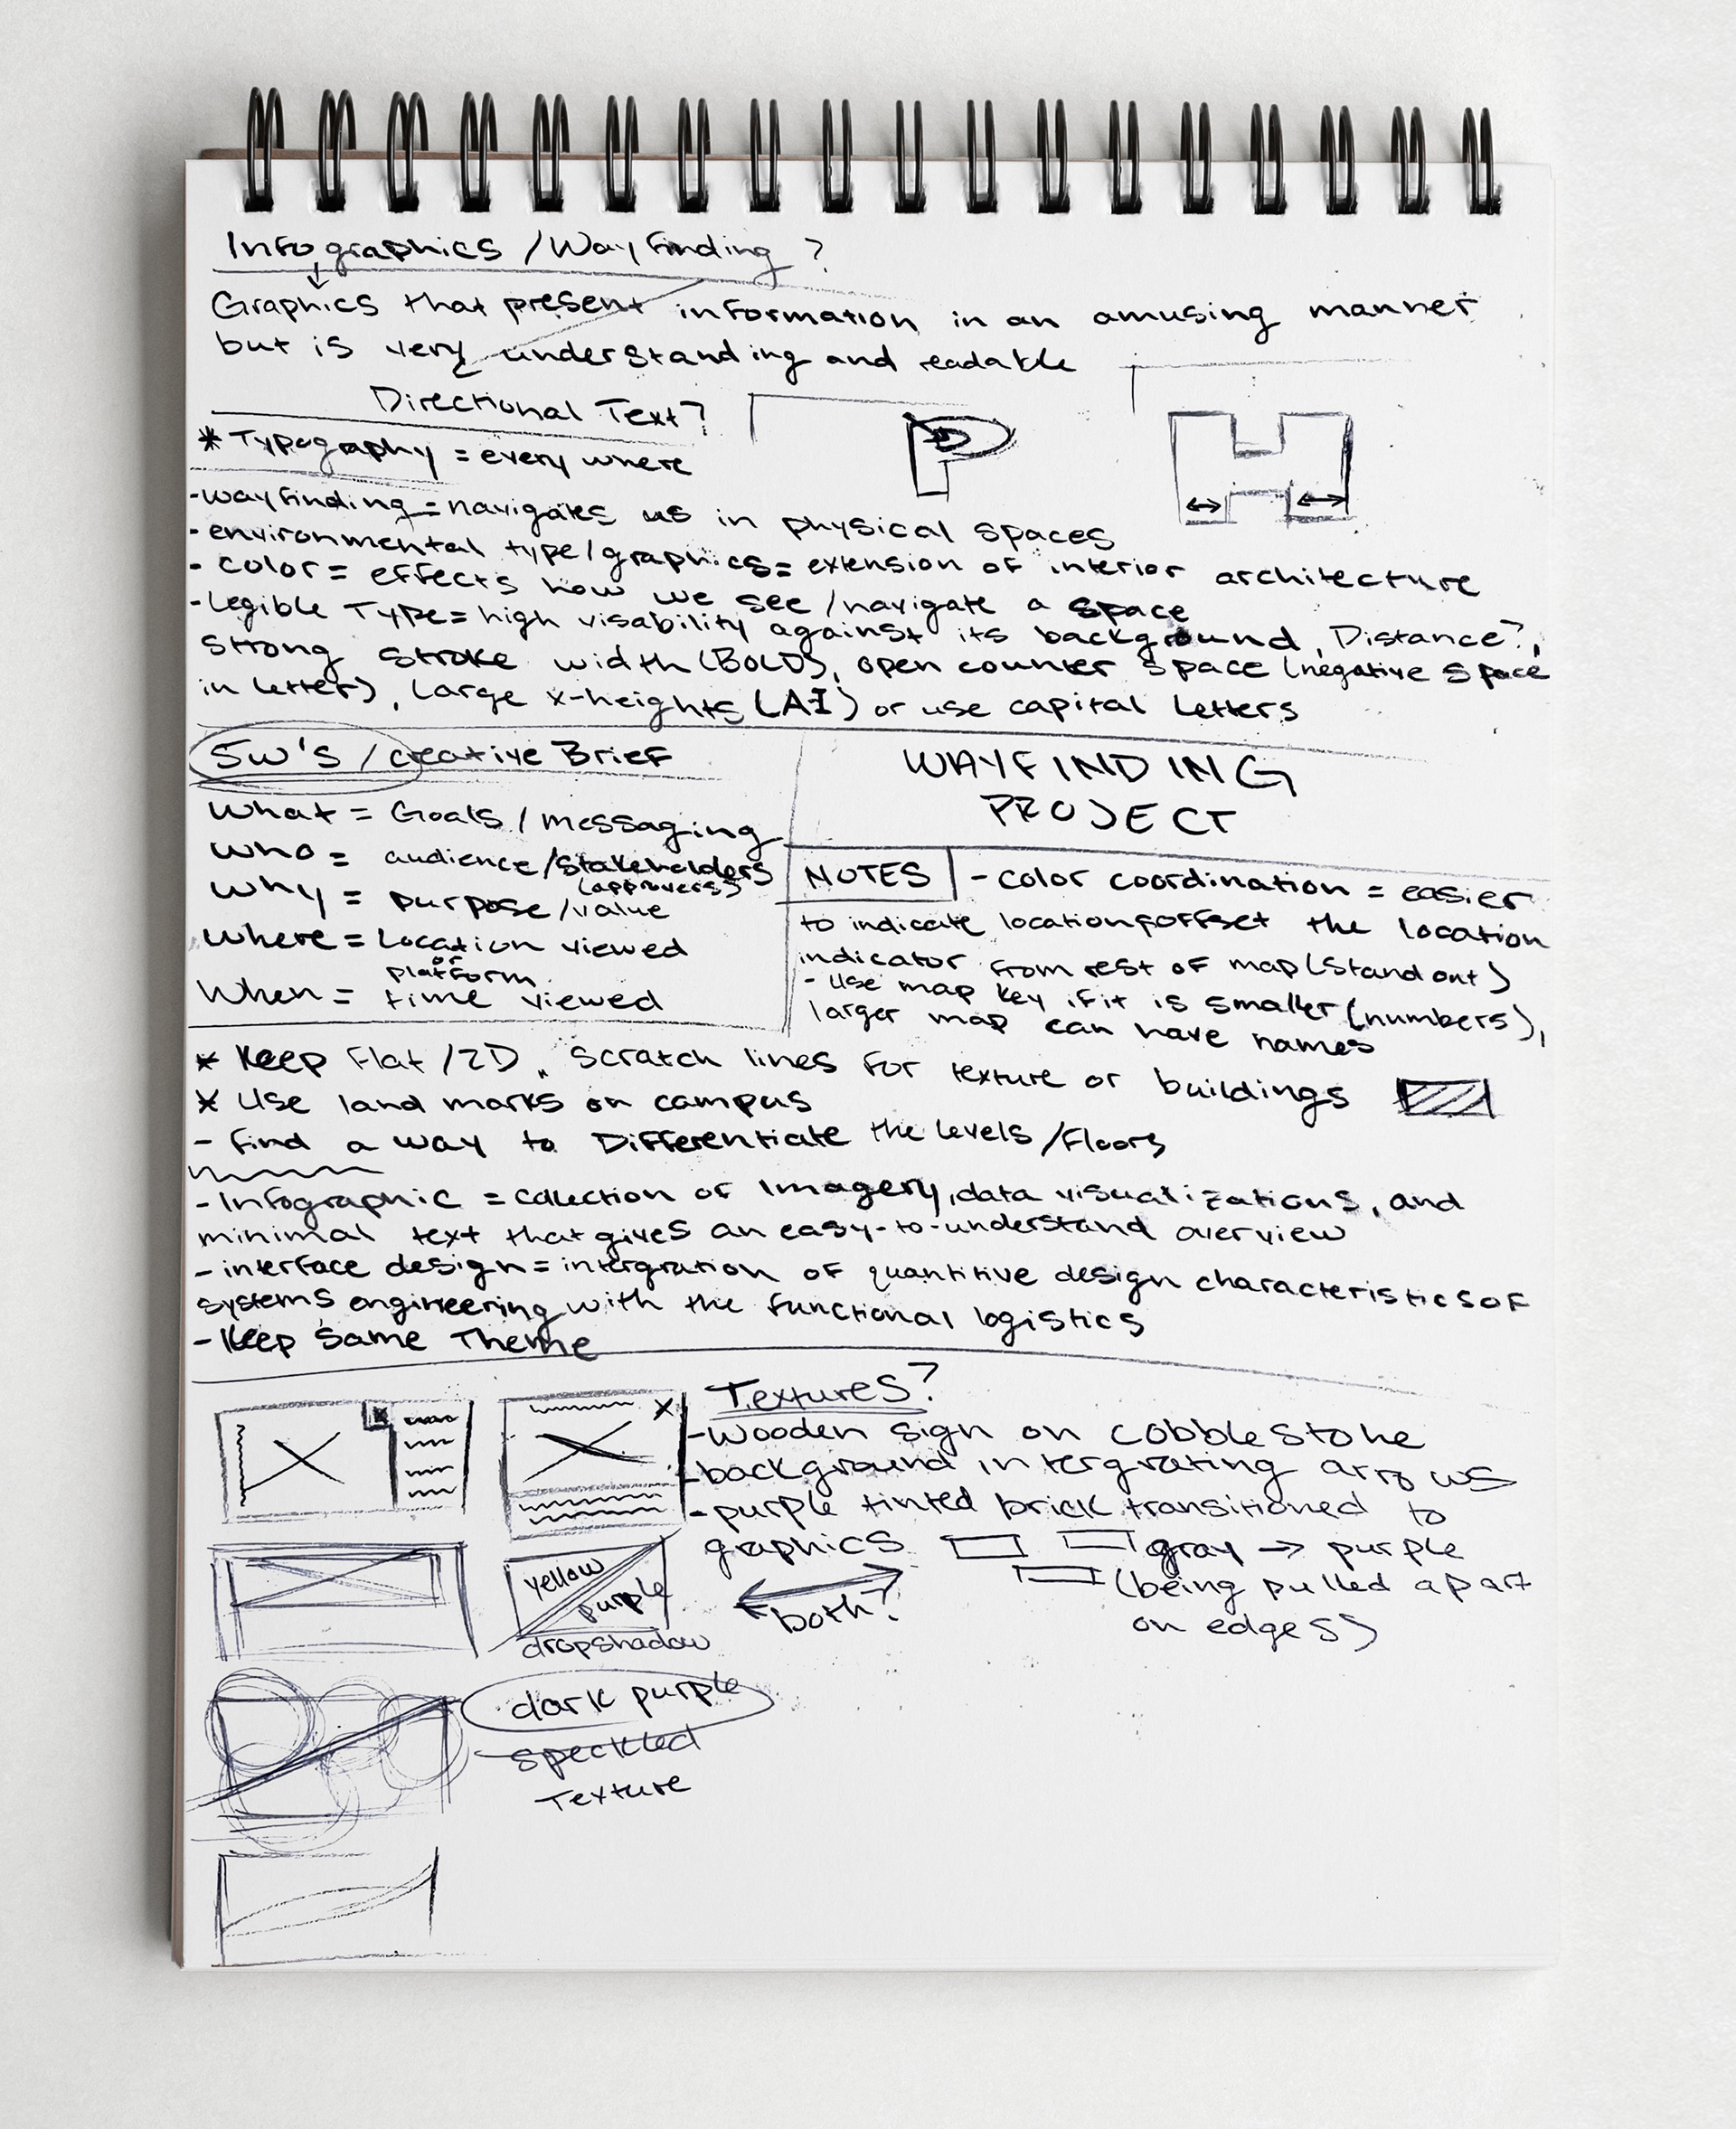 Infographics / Wayfinding ?
Graphics that present information in an amusing manner
but is very understanding and readable
Directional Text?
* Typography = every where
- wayfinding = navigates us in physical spaces
- environmental type/graphics = extension of interior architecture
- color = effects how we see/navigate a space
- Legible Type = high visability against its background, Distance?,
strong stroke width (BOLD), open counter space (negative space
in letter), large x-heights (AI) or use capital letters
5W'S / creative Brief
What = Goals / messaging
Who = audience/stakeholders
(approvers)
Why = purpose/value
Where = Location viewed
or
platform
When = time viewed
WAYFINDING
PROJECT
NOTES
- color coordination = easier
to indicate location, offset the location
indicator from rest of map (stand out)
- Use map key if it is smaller (numbers),
larger map can have names
* Keep Flat / 2D, Scratch lines for texture or buildings
* Use land marks on campus
- find a way to Differentiate the levels/floors
- Infographic = collection of Imagery, data visualizations, and
minimal text that gives an easy-to-understand overview
- interface design = intergration of quantitive design characteristics of
systems engineering with the functional logistics
- Keep Same Theme
Textures?
- Wooden sign on cobblestone
background intergrating arrows
- purple tinted brick transitioned to
graphics
gray → purple
(being pulled apart
on edges)
both?
yellow
purple
dropshadow
dark purple
speckled
Texture
P
H